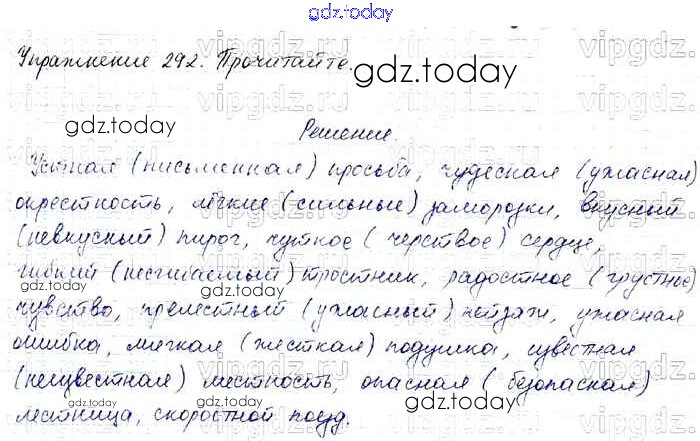 gdz.today
Упражнение 292. Прочитайте.
gdz.today
gdz.today
Решение.
Устная (письменная) просьба, чудесная (ужасная)
окрестность, лёгкие (сильные) заморозки, вкусный
(невкусный) пирог, чуткое (черствое) сердце,
гибкий (несгибаемый) тростник, радостное (грустное)
чувство, прелестный (ужасный) пейзаж, ужасная
ошибка, мягкая (жесткая) подушка, известная
(неизвестная) местность, опасная (безопасная)
лестница, скоростной поезд.
gdz.today
gdz.today
gdz.today